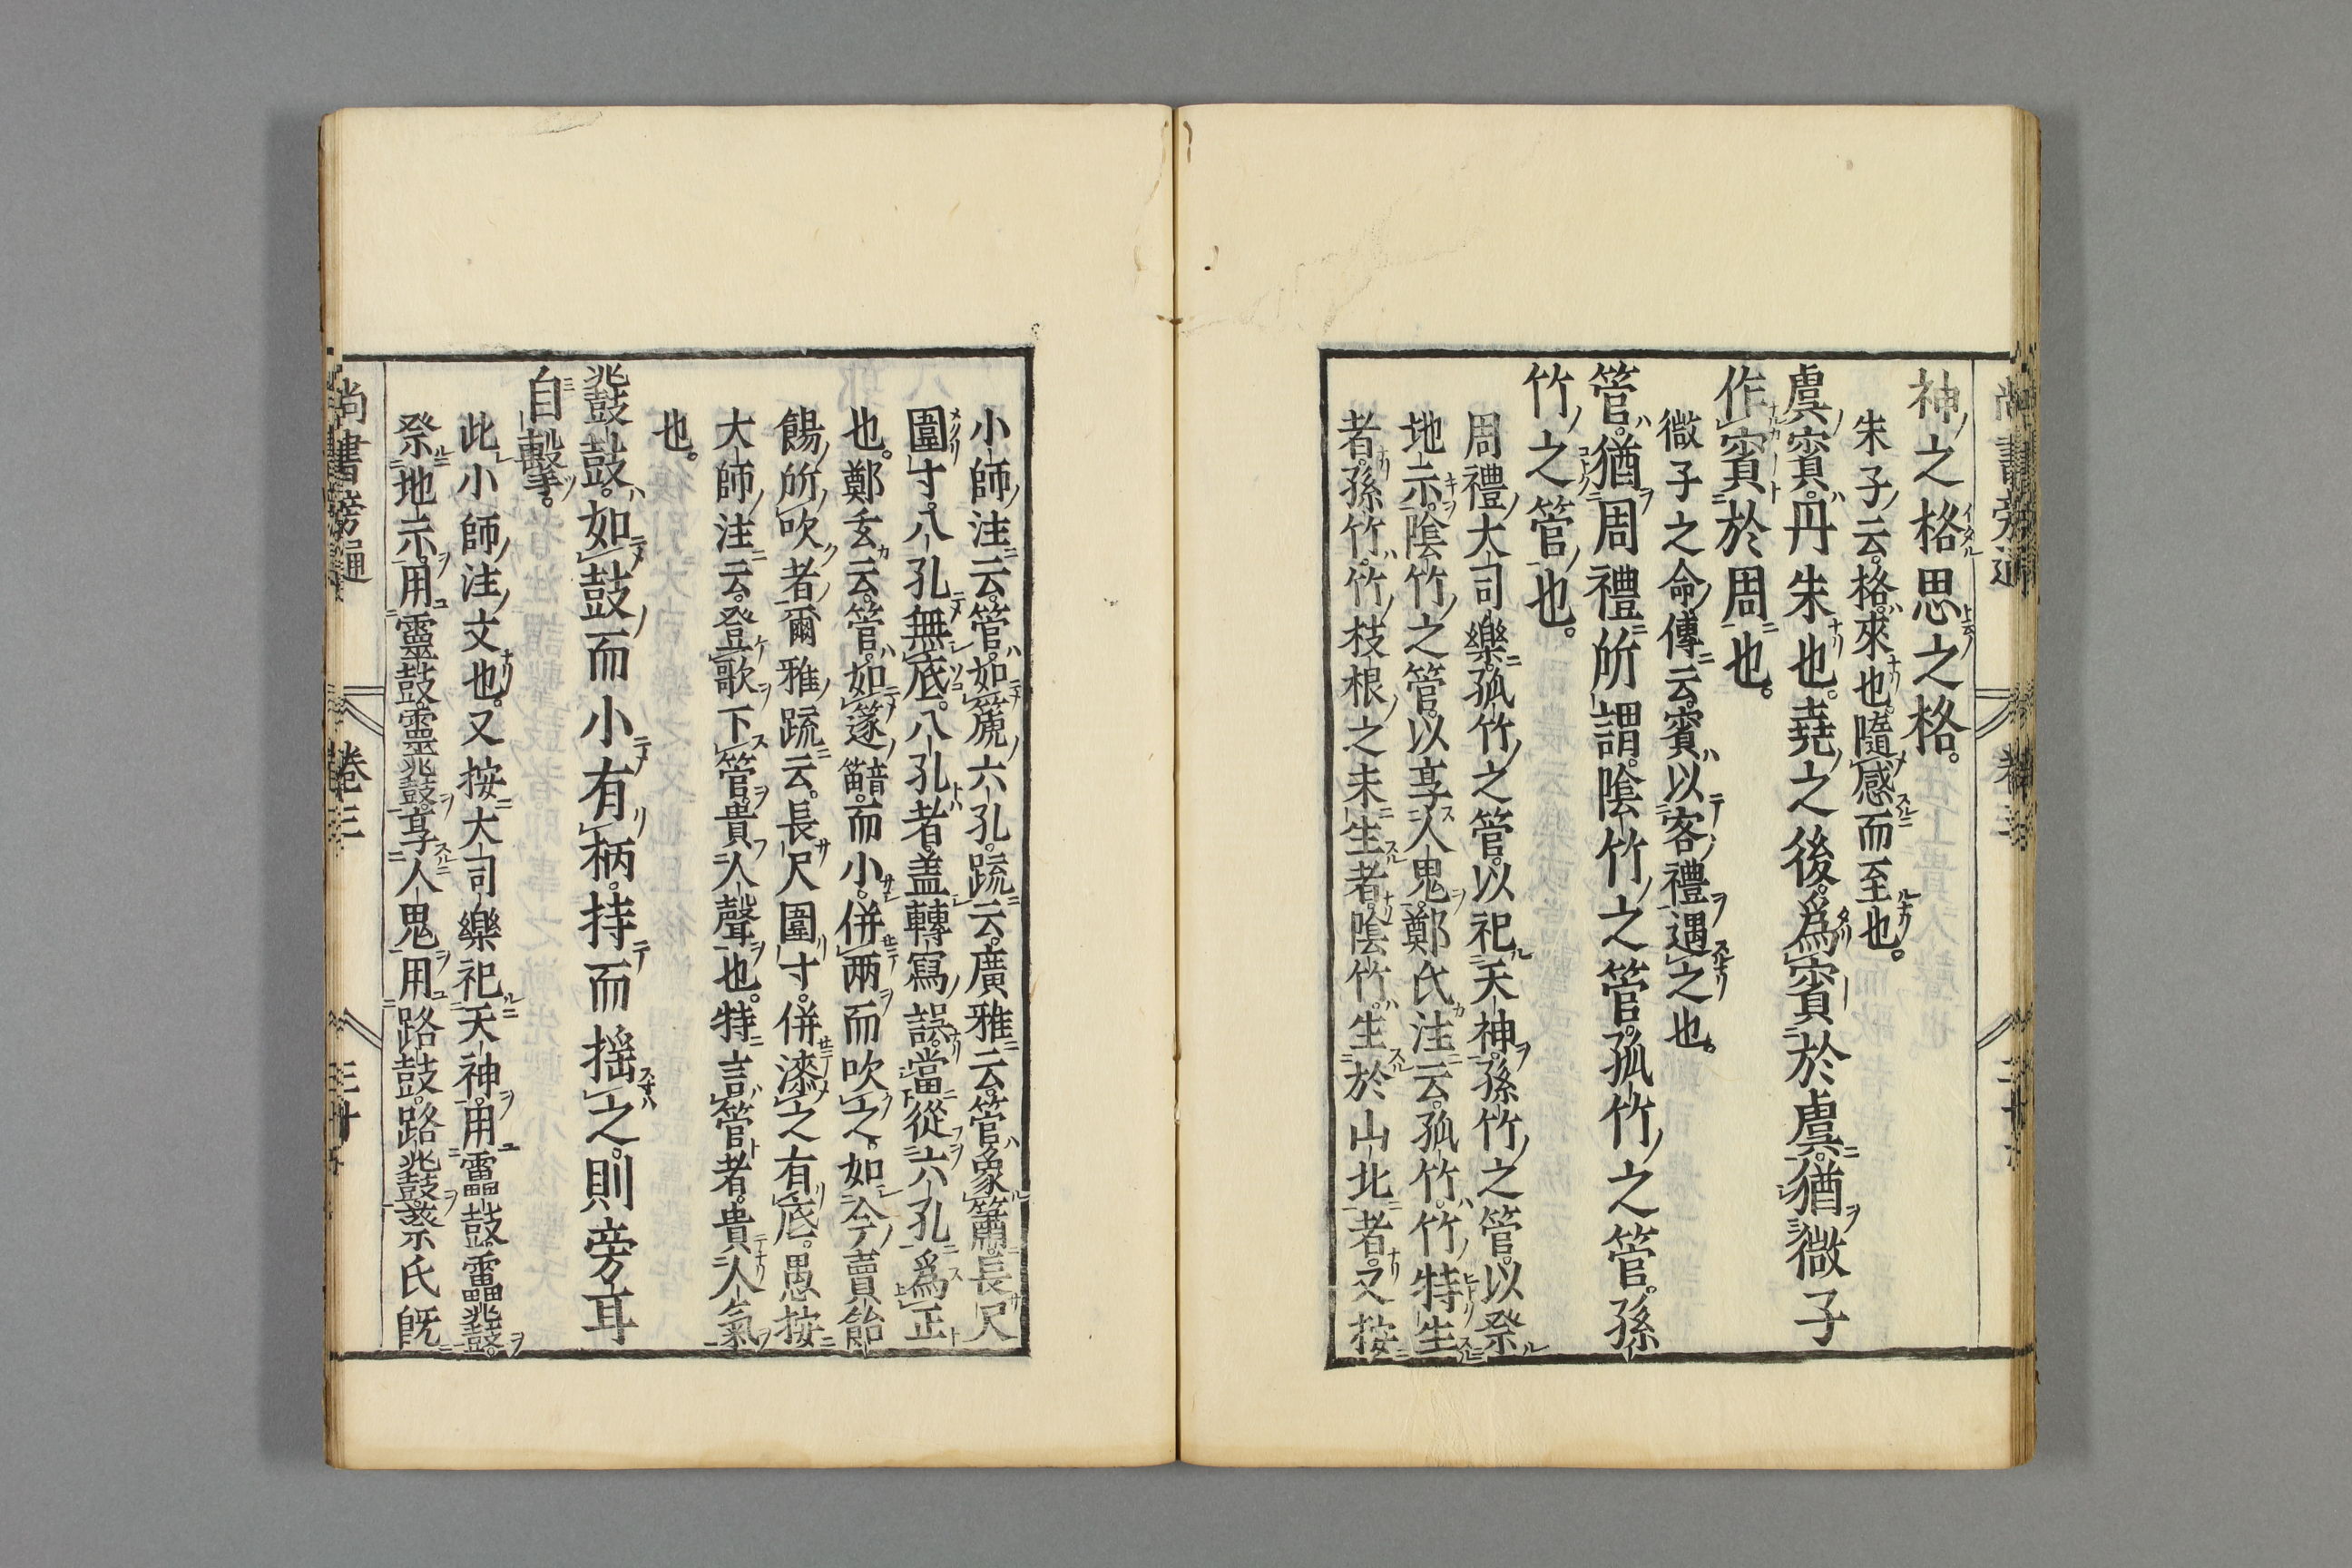 神之格思之格。
朱子云。格。來也。隨感而至也。
虞賓。丹朱也。堯之後。爲賓於虞。猶微子
作賓於周也。
微子之命傳云。賓以客禮遇之也。
管。猶周禮所謂陰竹之管。孤竹之管。孫
竹之管也。
周禮大司樂。孤竹之管。以祀天神。孫竹之管。以祭
地示。陰竹之管。以享人鬼。鄭氏注云。孤竹。竹特生
者。孫竹。竹枝根之末生者。陰竹。生於山北者。又按
小師注云。管。如篪六孔。疏云。廣雅云。管象簫。長尺
圍寸。八孔無底。八孔者。蓋轉寫誤。當從六孔爲正
也。鄭玄云。管。如篴而小。併兩而吹之。如今賣飴
餳所吹者。爾雅疏云。長尺圍寸。併漆之有底。愚按
大師注云。登歌下管。貴人聲也。特言管者。貴人氣
也。
鼗鼓。如鼓而小。有柄。持而搖之。則旁耳
自擊。
此小師注文也。又按大司樂祀天神。用靁鼓靁鼗。
祭地示。用靈鼓靈鼗。享人鬼。用路鼓路鼗。蔡氏旣
尚書旁通
卷三